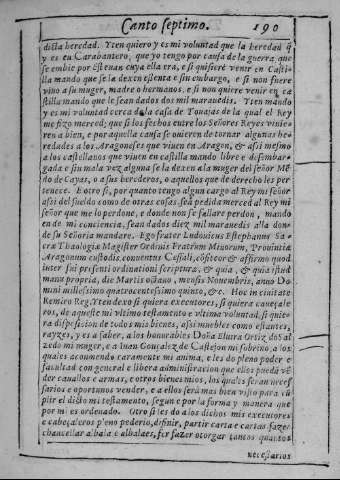 Canto septimo. 190
dicta heredad. Yten quiero y es mi voluntad que la heredad q̃
y es en Carabantero, que yo tengo por causa de la guerra, que
se embie por Esteuan cuya ella era, e si quisiere venir en Casti-
lla mando que se la dexen essenta e sin embargo, e si non fuere
vino a su muger, madre o hermanos, e si non quiere venir en ca
stilla mando que le sean dados dos mil marauedis. Yten mando
y es mi voluntad cerca de la casa de Tonajas de la qual el Rey
me fizo merced; que si los fechos entre los Señores Reyes vinie-
ren a bien, e por aquella causa se ouieren de tornar algunas he-
redades a los Aragoneses que viuen en Aragon, & assi mesmo
a los castellanos que viuen en castilla mando libre e desembar-
gada e sin mala voz alguna se la dexen a la muger del señor Mē
do de Cayas, o a sus herederos, o aquellos que de derecho les per-
tenece. Eotro si, por quanto tengo algun cargo al Rey mi señor
assi del sueldo como de otras cosas, sea pedida merced al Rey mi
señor que me lo perdone, e donde non se fallare perdon, mando
en de mi conciencia, sean dados diez mil marauedis alla don-
de su Señoria mandare. Ego frater Ludouicus Estephanus Sa-
cræ Theologiæ Magister Ordinis Fratrum Minorum, Prouintiæ
Aragonum custodis, conuentus Cassali, cõfiteor & affirmo quod
inter fui presenti ordinationi scripturæ, & quia, & quia istud
manu propria, die Martis octauo, mensis Nouembris, anno Do-
mini millessimo quatrocentessimo quinto, &c. Hoc in ciuitate
Remiro Reg. Yten dexo si quiera executores, si quiera caueçale-
ros, de aqueste mi vltimo testamento e vltima voluntad, si quie-
ra disposicion de todos mis bienes, assi muebles como estantes,
rayzes, y es a saber, a los honorables Doña Eluira Ortiz dos al
zedo mi muger, e a Iuan Gonçalez de Castejon mi sobrino, a los
quales acomiendo caramente mi anima, e les do pleno poder e
facultad con general e libera administracion que ellos pueda vē
der cauallos e armas, e otros bienes mios, los quales seran neces
sarios e oportunos vender, e a ellos será mas bien visto para cũ
plir el dicto mi testamento, segun e por la forma y manera que
por mi es ordenado. Otro si les do a los dichos mis executores
e cabeçaleros p'leno poderio, difinir, partir carta e cartas fazer
chancellar albala e albalaes, fer fazer otorgar tantos quantos
necessarios